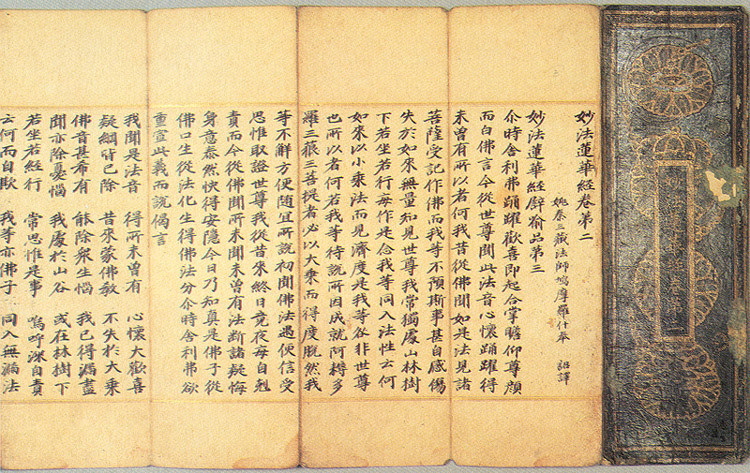 妙法蓮華經卷第二
妙法蓮華經卷第二
姚秦三藏法師鳩摩羅什奉 詔譯
妙法蓮華經譬喻品第三
尒時舍利弗踊躍歡喜即起合掌瞻仰尊顏
而白佛言今從世尊聞此法音心懷踊躍得
未曾有所以者何我昔從佛聞如是法見諸
菩薩受記作佛而我等不預斯事甚自感傷
失於如來無量知見世尊我常獨處山林樹
下若坐若行每作是念我等同入法性云何
如來以小乘法而見濟度是我等咎非世尊
也所以者何若我等待說所因成就阿耨多
羅三藐三菩提者必以大乘而得度脫然我
等不解方便隨宜所說初聞佛法遇便信受
思惟取證世尊我從昔來終日竟夜每自剋
責而今從佛聞所未聞未曾有法斷諸疑悔
身意泰然快得安隱今日乃知真是佛子從
佛口生從法化生得佛法分尒時舍利弗欲
重宣此義而說偈言
我聞是法音 得所未曾有 心懷大歡喜
疑網皆已除 昔來蒙佛教 不失於大乘
佛音甚希有 能除衆生惱 我已得漏盡
聞亦除憂惱 我處於山谷 或在林樹下
若坐若經行 常思惟是事 嗚呼深自責
云何而自欺 我等亦佛子 同入無漏法